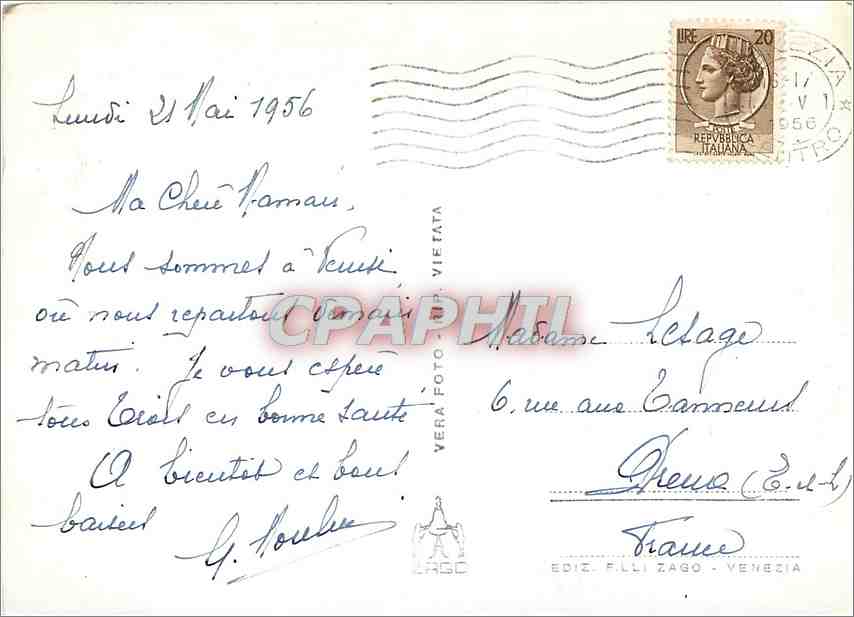 Lundi 21 Mai 1956
Ma Chère Maman,
Nous sommes à Venise
où nous repartons demain
matin. Je vous espère
tous trois en bonne santé
A bientôt et bons
baisers
LIRE 20
POSTE
REPVBBLICA
ITALIANA
1956
VERA FOTO - RIP. VIETATA
CPAPHIL
Madame Lesage
6. rue aux Tanneurs
Dreux (E-et-L)
France
ZAGO
EDIZ. F.LLI ZAGO - VENEZIA